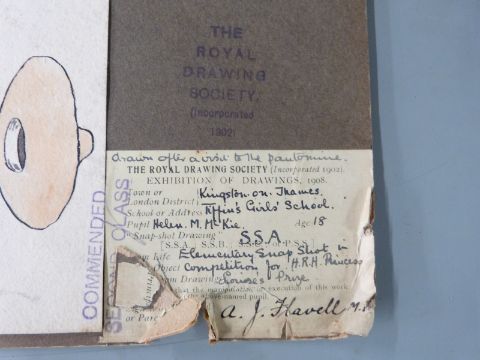 THE
ROYAL
DRAWING
SOCIETY.
(Incorporated
1902)
drawn after a visit to the pantomime.
THE ROYAL DRAWING SOCIETY (Incorporated 1902).
EXHIBITION OF DRAWINGS, 1908.
Town or
London District
Kingston-on-Thames
School or Address Tiffin's Girls' School.
Pupil Helen. M. McKie Age 18
"Snap-shot Drawing" S.S.A.
[S.S.A., S.S.B., or P.S.S.]
Life Elementary Snap Shot in
Object Competition for H.R.H. Princess
Drawing Louise's Prize
execution of this work
above-named pupil.
or Pare
A. J. Flavell
COMMENDED
SECOND CLASS